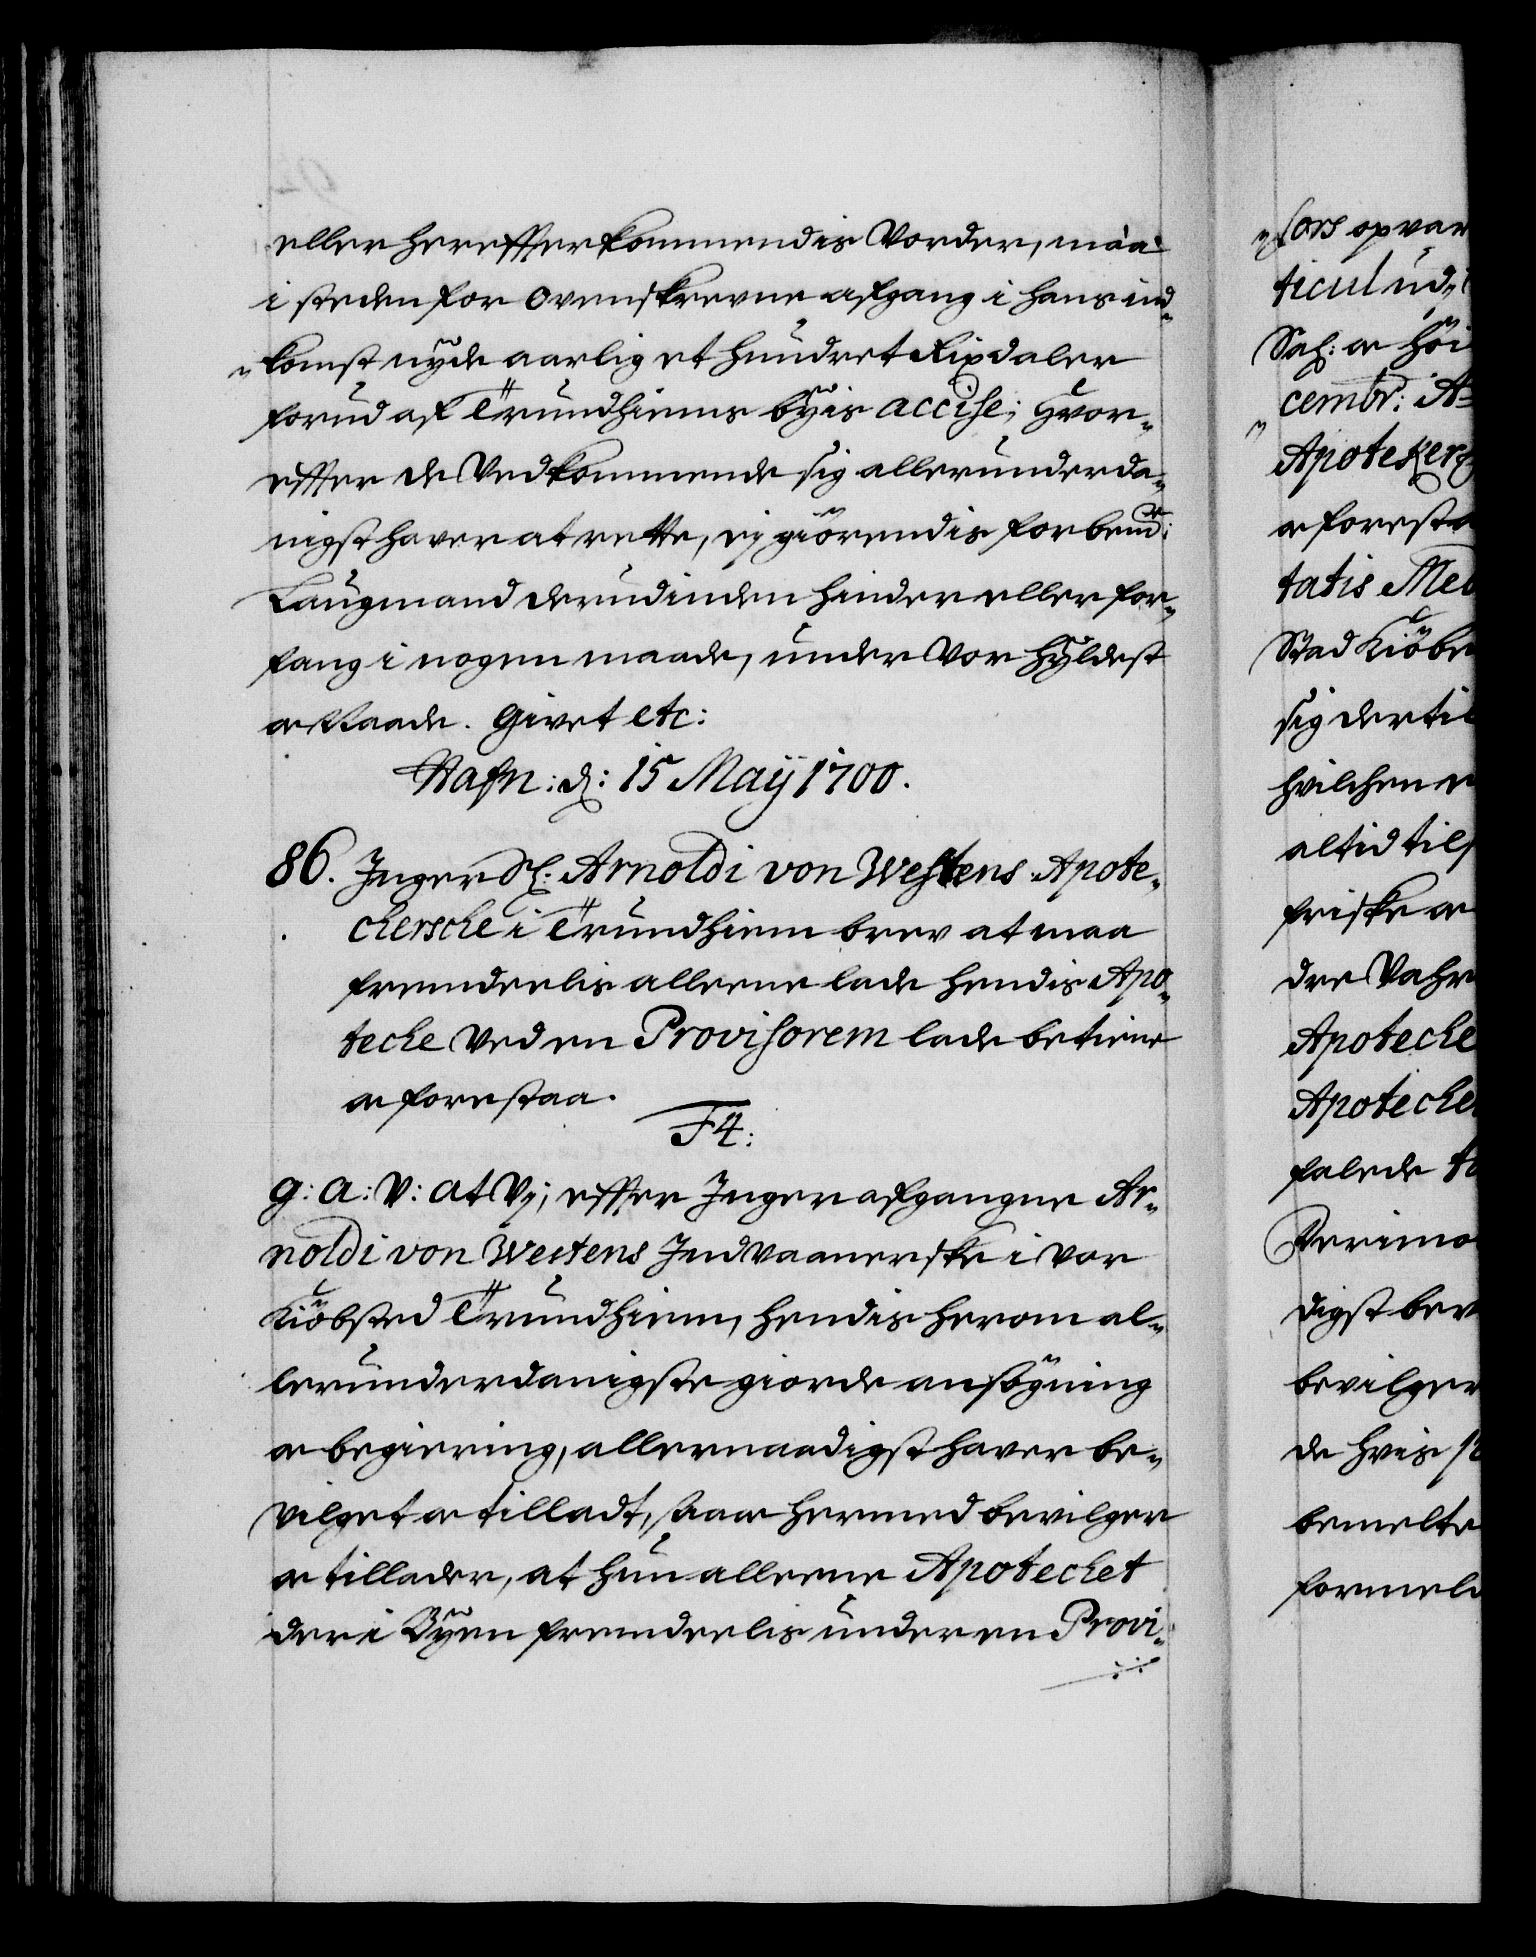 eller herefter kommendis Vorder, maa
i steden for ovenskrevne afgang i hans ind„
„komst nyde aarlig et hundret Rixdaler
forud af Trundhiems byis accise; Hvor„
efter de Vedkommende sig allerunderda„
nigst haver at rette, ej giörendis forbemte:
Laugmand derudinden hinder eller for„
fang i nogen maade, under Vor hyldest
og Naade. Givet etc:
Hafn: d: 15 Maij 1700.
86. Inger Sl: Arnoldi von Westens Apote„
chersche i Trundhiem brev at maa
fremdeelis alleene lade hendis Apo„
teche Ved en Provisorem lade betiene
og forestaa.
F4:
G: A: V: at Vj, efter Inger afgangne Ar„
noldi von Westens Indvaanerske i Vor
Kiöbsted Trundhiem, hendis herom al„
lerunderdanigste giorde ansögning
og begiering, allernaadigst haver be„
vilget og tilladt, saa og hermed bevilger
og tillader, at hun alleene Apotechet
der i Byen fremdeelis under en Provi„
„sors opvar
ticul ud„
Sal: og Höi
cembr: A
Apoteker
og foresta
tatis Med
Stad Kiöbe
sig dertil
hvilchen
altid til
friske og
dre Vahr
Apoteche
Apoteche
falede
Perimo
digst bev
bevilger
de hvis
bemelte
formel